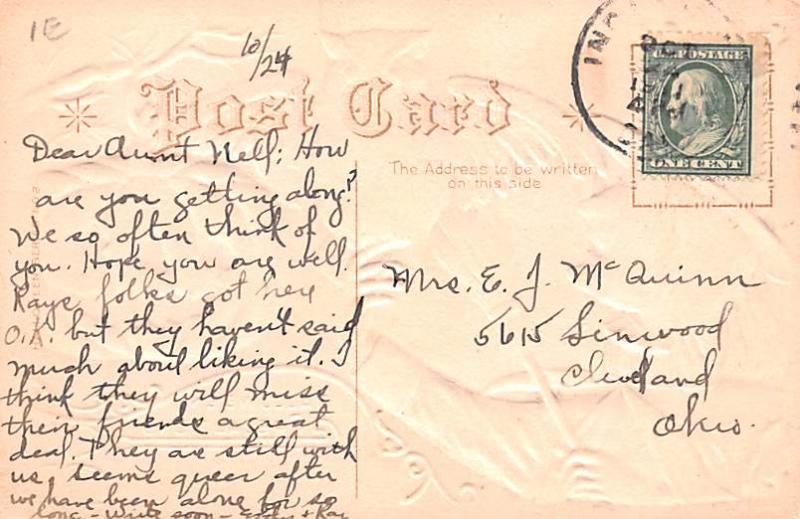 1E
10/24
Post Card
INC
OCT
U.S. POSTAGE
ONE CENT
The Address to be written
on this side
Dear Aunt Nell: How
are you getting along?
We so often think of
you. Hope you are well.
Rays folks got here
O.K. but they haven't said
much about liking it. I
think they will miss
their friends a great
deal. They are still with
us, seems queer after
we have been alone for so
long - Write soon - + Ray
Mrs. E. J. McQuinn
5615 Linwood
Cleveland
Ohio.